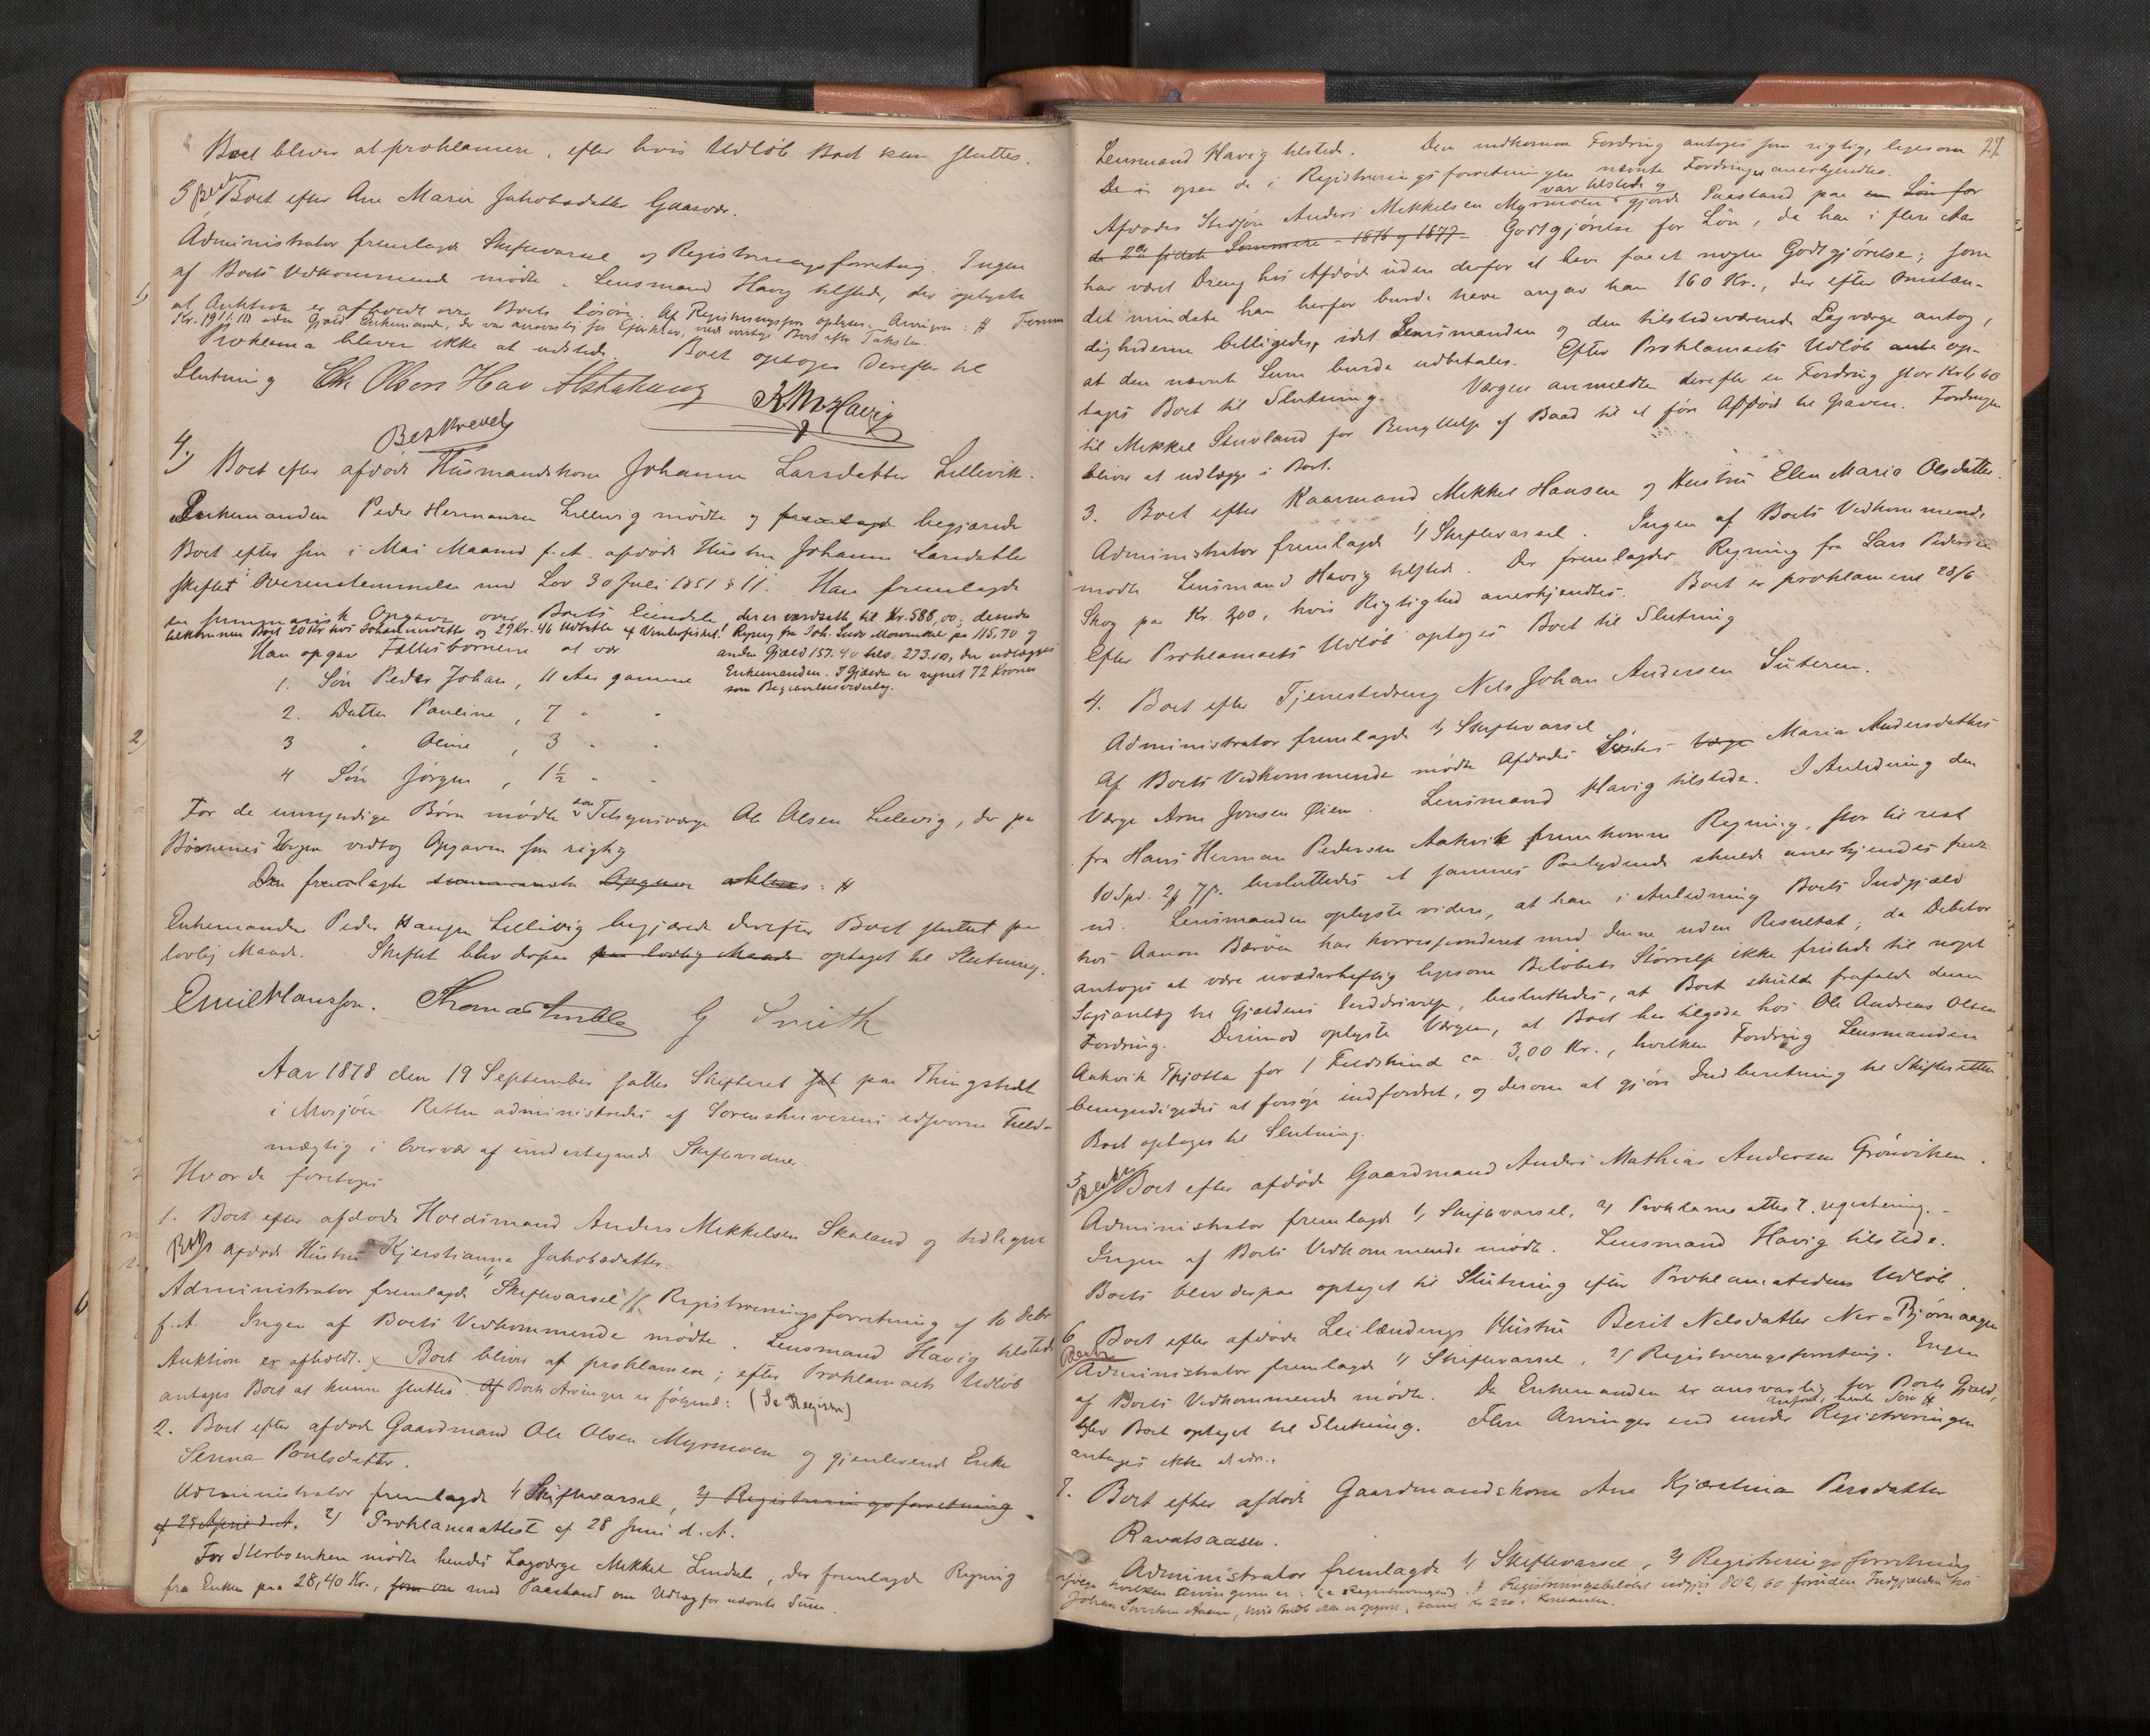 Boet bliver at proklamere, efter hvis Udløb Boet kan sluttes.
3 Boet efter Ane Marie Jakobsdatter Gaasvær.
Administrator fremlagde Skiftevarsel og Registreringsforretning. Ingen
af Boets Vedkommende mødte. Lensmand Havig tilstede, der oplyste
at Auktion er afholdt over Boets Løsøre. Af Registreringsforr. oplyses Arvingerne: #
Kr. 191.10 uden Gjæld Enkemanden, der var ansvarlig for
Proklama bliver ikke at udstede. Boet optoges derefter til
Slutning Chr. Olsen Hav Alstahaug K M Havig
Beskrevet
4. Boet efter afdøde Husmandskone Johanna Larsdatter Lillevik.
Enkemanden Peder Hermansen Lillevig mødte og fremlagde begjærede
Boet efter sin i Mai Maaned f. A. afdøde Hustru Johanna Larsdatter
skiftet i Overenstemmelse med Lov 30 Juli 1851 § 11. Han fremlagde
en summarisk Opgave over Boets Eiendele der er værdsatte til Kr. 588,00; desuden
tilkommer Boet 20 Kr. hos Johan og 29 Kr. 46 Udbytte af Vinterfisket! Regning fra Joh. paa 115,70 og
Han opgav Fællesbørnene at være anden Gjæld 157.40 tils. 273.10, der udlægges
1. Søn Peder Johan, 11 Aar gammel Enkemanden. I Gjælden er regnet 72 Kroner
som Begravelsesvederlag.
2. Datter Pauline, 7 " "
3 " Oline, 3 " "
4 Søn Jørgen, 1½ " "
For de umyndige Børn mødte som Tilsynsværge Ole Olsen Lillevig, der paa
Børnenes Vegne vedtog Opgaven som rigtig
Den fremlagte summariske Opgave : #
Enkemanden Peder Hansen Lillevig begjærede derefter Boet sluttet paa
lovlig Maade. Skiftet blev derpaa paa lovlig Maade optaget til Slutning.
Emil Hansson. Thomas G Smith
Aar 1878 den 19 September sattes Skifteret sat paa Thingstedet
i Mosjøen Retten administredes af Sorenskriverens edsvorne Fuld-
mægtig i Overvær af undertegnede Skiftevidner
Hvorda foretoges
1. Boet efter afdøde Huusmand Anders Mekkelsen Skaland og tidligere
afdøde Hustru Kjerstianna Jakobsdatter.
Administrator fremlagde 1) Skiftevarsel 2) Registreringsforretning af 10 Febr
f. A. Ingen af Boets Vedkommende mødte. Lensmand Havig tilstede
Auktion er afholdt. Boet bliver at proklamere; efter Proklamaets Udløb
antages Boet at kunne sluttes. Af Boets Arvinger er følgende: (Se Registr.)
2. Boet efter afdøde Gaardmand Ole Olsen Myrmoen og gjenlevende Enke
Serina Poulsdatter.
Administrator fremlagde 1) Skiftevarsel, 2) Registreringsforretning
af 25 April d. A. 2) Proklamaattest af 28 Juni d. A.
For Sterboenken mødte hendes Lagværge Mekkel Lindset, der fremlagde Regning
fra Enken paa 28,40 Kr., som en med Paastand om Udlæg for nævnte Sum.
27
Lensmand Havig tilstede. Den indkomne Fordring antoges som rigtig, ligesom
De i ogsaa de i Registreringsforretningen nævnte Fordringer anerkjendtes.
Afdødes Stedsøn Anders Mikkelsen Myrmoen var tilstede og gjorde Paastand paa en Løn for
de 2de sidste Sommere - 1876 og 1877 - Godtgjørelse for Løn, da han i flere Aar
har været Dreng hos Afdøde uden derfor at have faaet nogen Godtgjørelse; som
det mindste han herfor burde have angav han 160 Kr., der efter Omstæn-
dighederne billigedes, idet Lensmanden og den tilstedeværende Lagværge antog,
at den nævnte Sum burde udbetales. Efter Proklamaets Udløb ante op-
toges Boet til Slutning. Værgen anmeldte derefter en Fordring stor Kr. 4,60
til Mekkel Stuvland for Benyttelse af Baad til at føre Afdøde til Graven. Fordringen
bliver at udlægge i Boet.
3. Boet efter Kaarmand Mekkel Hansen og Hustru Elen Maria Olsdatter.
Administrator fremlagde 1) Skiftevarsel. Ingen af Boets Vedkommende
mødte Lensmand Havig tilstede. Der fremlagdes Regning fra Lars Pedersen
Skog paa Kr. 2,00, hvis Rigtighed anerkjendtes. Boet er proklameret 28/6
Efter Proklamaets Udløb optoges Boet til Slutning
4. Boet efter Tjenestedreng Nils Johan Andersen Süteren.
Administrator fremlagde 1) Skiftevarsel
Af Boets Vedkommende mødte Afdødes Søsters Værge Maria Andersdatters
Værge Arne Jonsen Øien. Lensmand Havig tilstede. I Anledning den
fra Hans Herman Pedersen Aakvik fremkomne Regning, stor til rest
10 Spd. 2 # 7 β. besluttedes at sammes Paalydende skulde anerkjendes fuldt
ud. Lensmanden oplyste videre, at han i Anledning Boets Indgjæld
hos Aanon Bærøen har korresponderet med denne uden Resultat; da Debitor
antoges at være uvederheftig ligesom Beløbets Størrelse ikke fristede til noget
Sagsanlæg til Gjældens Inddrivelse, besluttedes, at Boet skulde frafalde denne
Fordring. Derimod oplyste Værgen, at Boet har tilgode hos Ole Andreas Olsen
Aakvik Thjøtta for 1 Feldskind ca. 3,00 Kr., hvilken Fordring Lensmanden
bemyndigedes at forsøge indfordret, og derom at gjøre Indberetning til Skifteretten
Boet optoges til Slutning.
5 Boet efter afdøde Gaardmand Anders Mathias Andersen Grønviken.
Administrator fremlagde 1) Skiftevarsel, 2) Proklamaattest, registrering. -
Ingen af Boets Vedkommende mødte. Lensmand Havig tilstede.
Boets blev derpaa optaget til Slutning efter Proklamatidens Udløb.
6 Boet efter afdøde Leilændings Hustru Berit Nilsdatter Ner-Bjørnaagen
Administrator fremlagde 1) Skiftevarsel, 2) Registreringsforretning. Ingen
af Boets Vedkommende mødte. Da Enkemanden er ansvarlig for Boets Gjæld,
blev Boet optaget til Slutning. Flere Arvinger end under Registreringen
anført,
antages ikke at være.
7. Boet efter afdøde Gaardmandskone Ane Kjærstina Persdatter
Ravatsaasen.
Administrator fremlagde 1) Skiftevarsel, 2) Registreringsforretning
ifølge hvilken Arvingerne er: (se Registreringen). # Registreringsbeløbet udgjør 802,60 foruden Indgjælden hos
Johan Kr 220 i Kontanter.